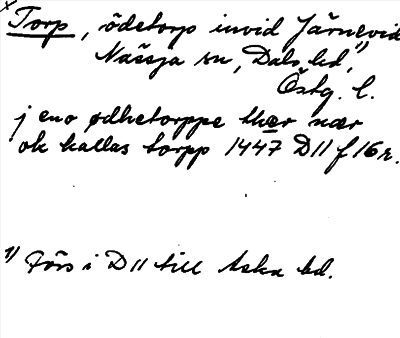 x Torp, ödetorp invid Järnevid 1)
Nässja sn, Dals hd,
Östg. l.
j eno ødhetorppe thær nær
ok kallas torpp 1447 D11 f 16 r.
1) Förs i D11 till Aska hd.